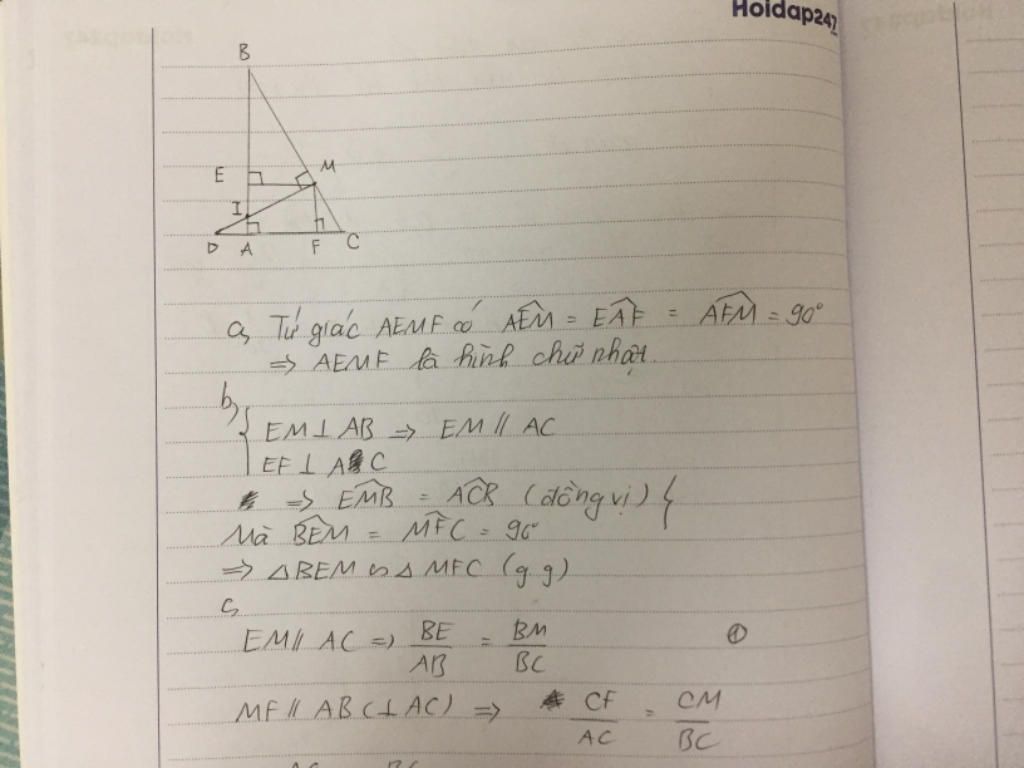 Hoidap247
B
E
M
I
D A F C
a, Tứ giác AEMF có \widehat{AEM} = \widehat{EAF} = \widehat{AFM} = 90°
=> AEMF là hình chữ nhật.
b,
{ EM ⊥ AB => EM // AC
EF ⊥ AC
=> \widehat{EMB} = \widehat{ACB} (đồng vị) }
Mà \widehat{BEM} = \widehat{MFC} = 90°
=> △BEM ∽ △MFC (g.g)
c,
EM // AC => \frac{BE}{AB} = \frac{BM}{BC} ①
MF // AB (⊥ AC) => \frac{CF}{AC} = \frac{CM}{BC}